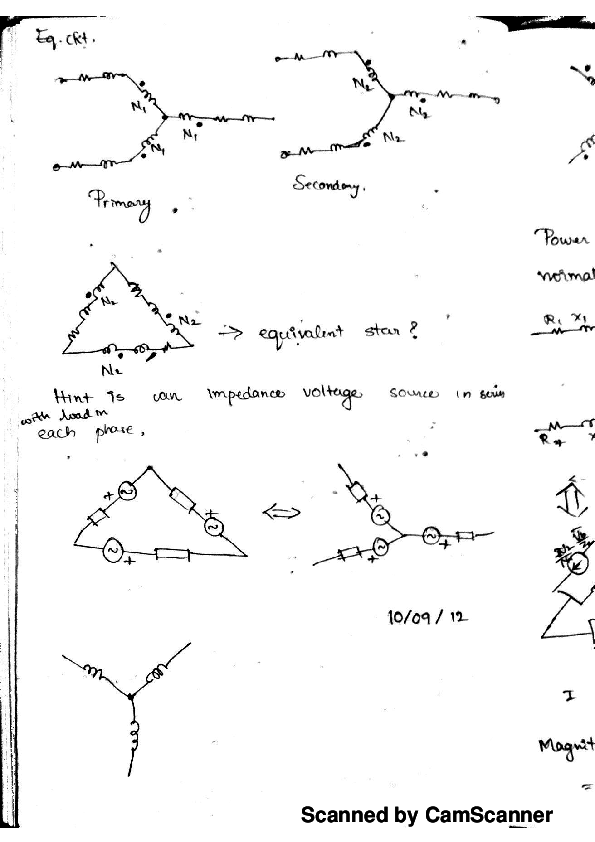 Eq. ckt.
N₁
N₁
N₁
Primary
N₂
N₂
N₂
Secondary.
N₂
N₂
N₂
→ equivalent star?
Hint is can impedance voltage source in series
with load in
each phase,
+
+
+
+
+
+
10/09/12
Power
normal
R₁ X₁
R
I
Magnit
=
Scanned by CamScanner